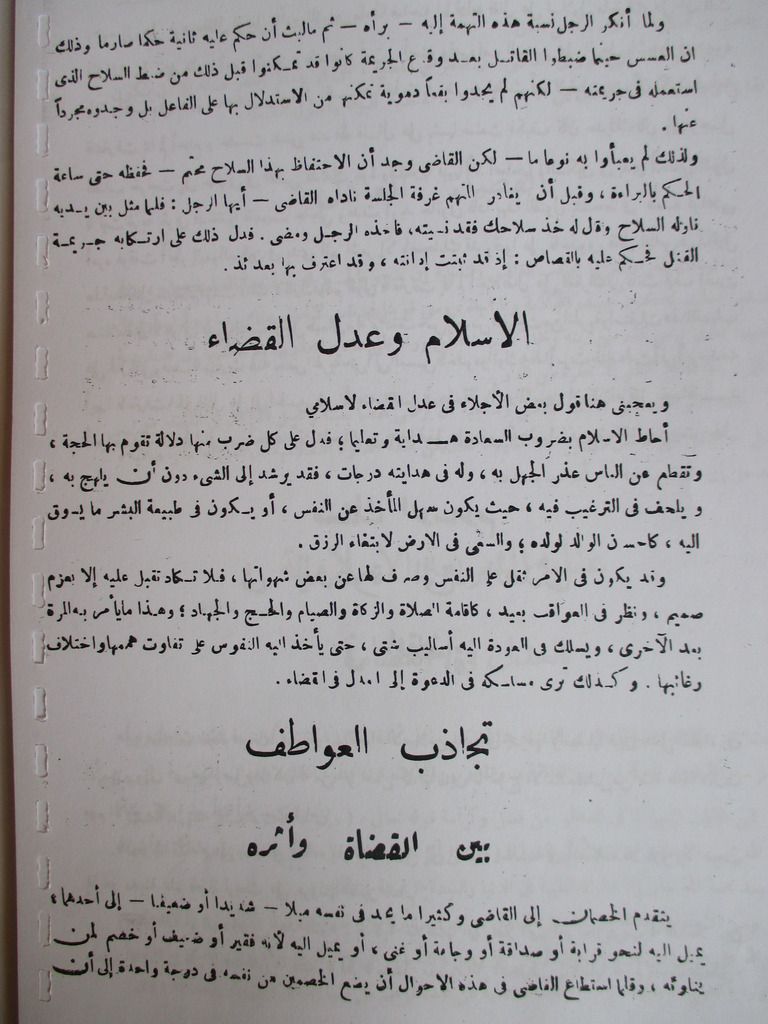 ولما أنكر الرجل نسبة هذه التهمة إليه — برأه — ثم مالبث أن حكم عليه ثانية حكما صارما وذلك
ان العسس حينما ضبطوا القاتل بعد وقوع الجريمة كانوا قد تمكنوا قبل ذلك من ضبط السلاح الذى
استعمله فى جريمته — لكنهم لم يجدوا بقعاً دموية تمكنهم من الاستدلال بها على الفاعل بل وجدوه مجرداً
عنها .
ولذلك لم يعبأوا به نوعا ما — لكن القاضى وجد أن الاحتفاظ بهذا السلاح محتم — فحفظه حتى ساعة
الحكم بالبراءة ، وقبل أن يغادر المتهم غرفة الجلسة ناداه القاضى — أيها الرجل : فلما مثل بين يديه
ناوله السلاح وقال له خذ سلاحك فقد نسيته، فأخذه الرجل ومضى . فدل ذلك على ارتكابه جريمة
القتل فحكم عليه بالقصاص : إذ قد ثبتت إدانته ، وقد اعترف بها بعد ئذ .
الاسلام وعدل القضاء
ويعجبنى هنا قول بعض الأجلاء فى عدل القضاء لاسلامي
أحاط الاسلام بضروب السعادة هداية وتعليما ؛ فدل على كل ضرب منها دلالة تقوم بها الحجة ،
وتقطع عن الناس عذر الجهل به ، وله فى هدايته درجات ، فقد يرشد إلى الشىء دون أن يلهج به ،
ويلحف فى الترغيب فيه ، حيث يكون سهل المأخذ عن النفس ، أو يكون فى طبيعة البشر ما يسوق
اليه ، كاحسان الوالد لولده ؛ والسعى فى الارض لابتغاء الرزق .
وقد يكون فى الامر ثقل على النفس وصرف لها عن بعض شهواتها ، فلا تكاد تقبل عليه إلا بعزم
صميم ، ونظر فى العواقب بعيد ، كاقامة الصلاة والزكاة والصيام والحج والجهاد ؛ وهذا ما يأمر به المرة
بعد الأخرى ، ويسلك فى العودة اليه أساليب شتى ، حتى يأخذ اليه النفوس على تفاوت هممها واختلاف
رغائبها . وكذلك ترى مسلكه فى الدعوة إلى العدل فى القضاء .
تجاذب العواطف
بين القضاة وأثره
يتقدم الخصمان إلى القاضى وكثيرا ما يجد فى نفسه ميلا — شديدا أو ضعيفا — إلى أحدهما ؛
يميل اليه لنحو قرابة أو صداقة أو وجاهة أو غنى ، أو يميل اليه لأنه فقير أو ضعيف أو خصم لمن
يناوئه ، وقلما استطاع القاضى فى هذه الاحوال أن يضع الخصمين من نفسه فى درجة واحدة إلى أن